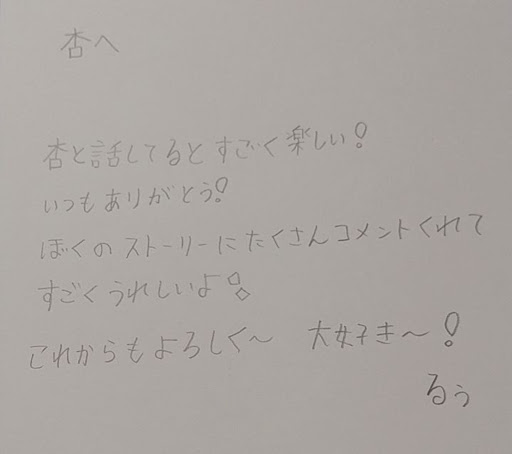 杏へ
杏と話してるとすごく楽しい!
いつもありがとう!
ぼくのストーリーにたくさんコメントくれて
すごくうれしいよ!
これからもよろしく〜 大好き〜!
るぅ